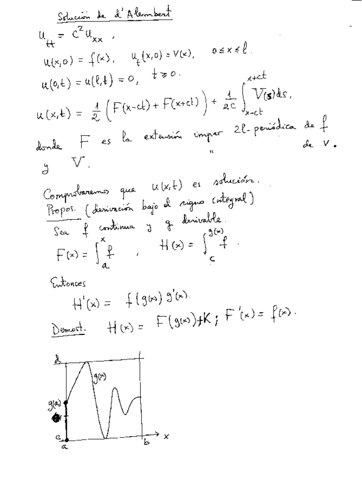 Solución de d'Alembert
u_tt = c² u_xx ,
u(x,0) = f(x), u_t(x,0) = v(x), 0 ≤ x ≤ l.
u(0,t) = u(l,t) = 0, t ≥ 0.
u(x,t) = 1/2 (F(x-ct) + F(x+ct)) + 1/2c ∫_{x-ct}^{x+ct} V(s) ds,
donde F es la extensión impar 2l-periódica de f
y V " de v.
Comprobaremos que u(x,t) es solución.
Propos. (derivación bajo el signo integral)
Sea f continua y g derivable.
F(x) = ∫_a^x f , H(x) = ∫_c^{g(x)} f
Entonces
H'(x) = f(g(x)) g'(x).
Demost. H(x) = F(g(x)) + K ; F'(x) = f(x).
d
g(x)
g(a)
c
a b x